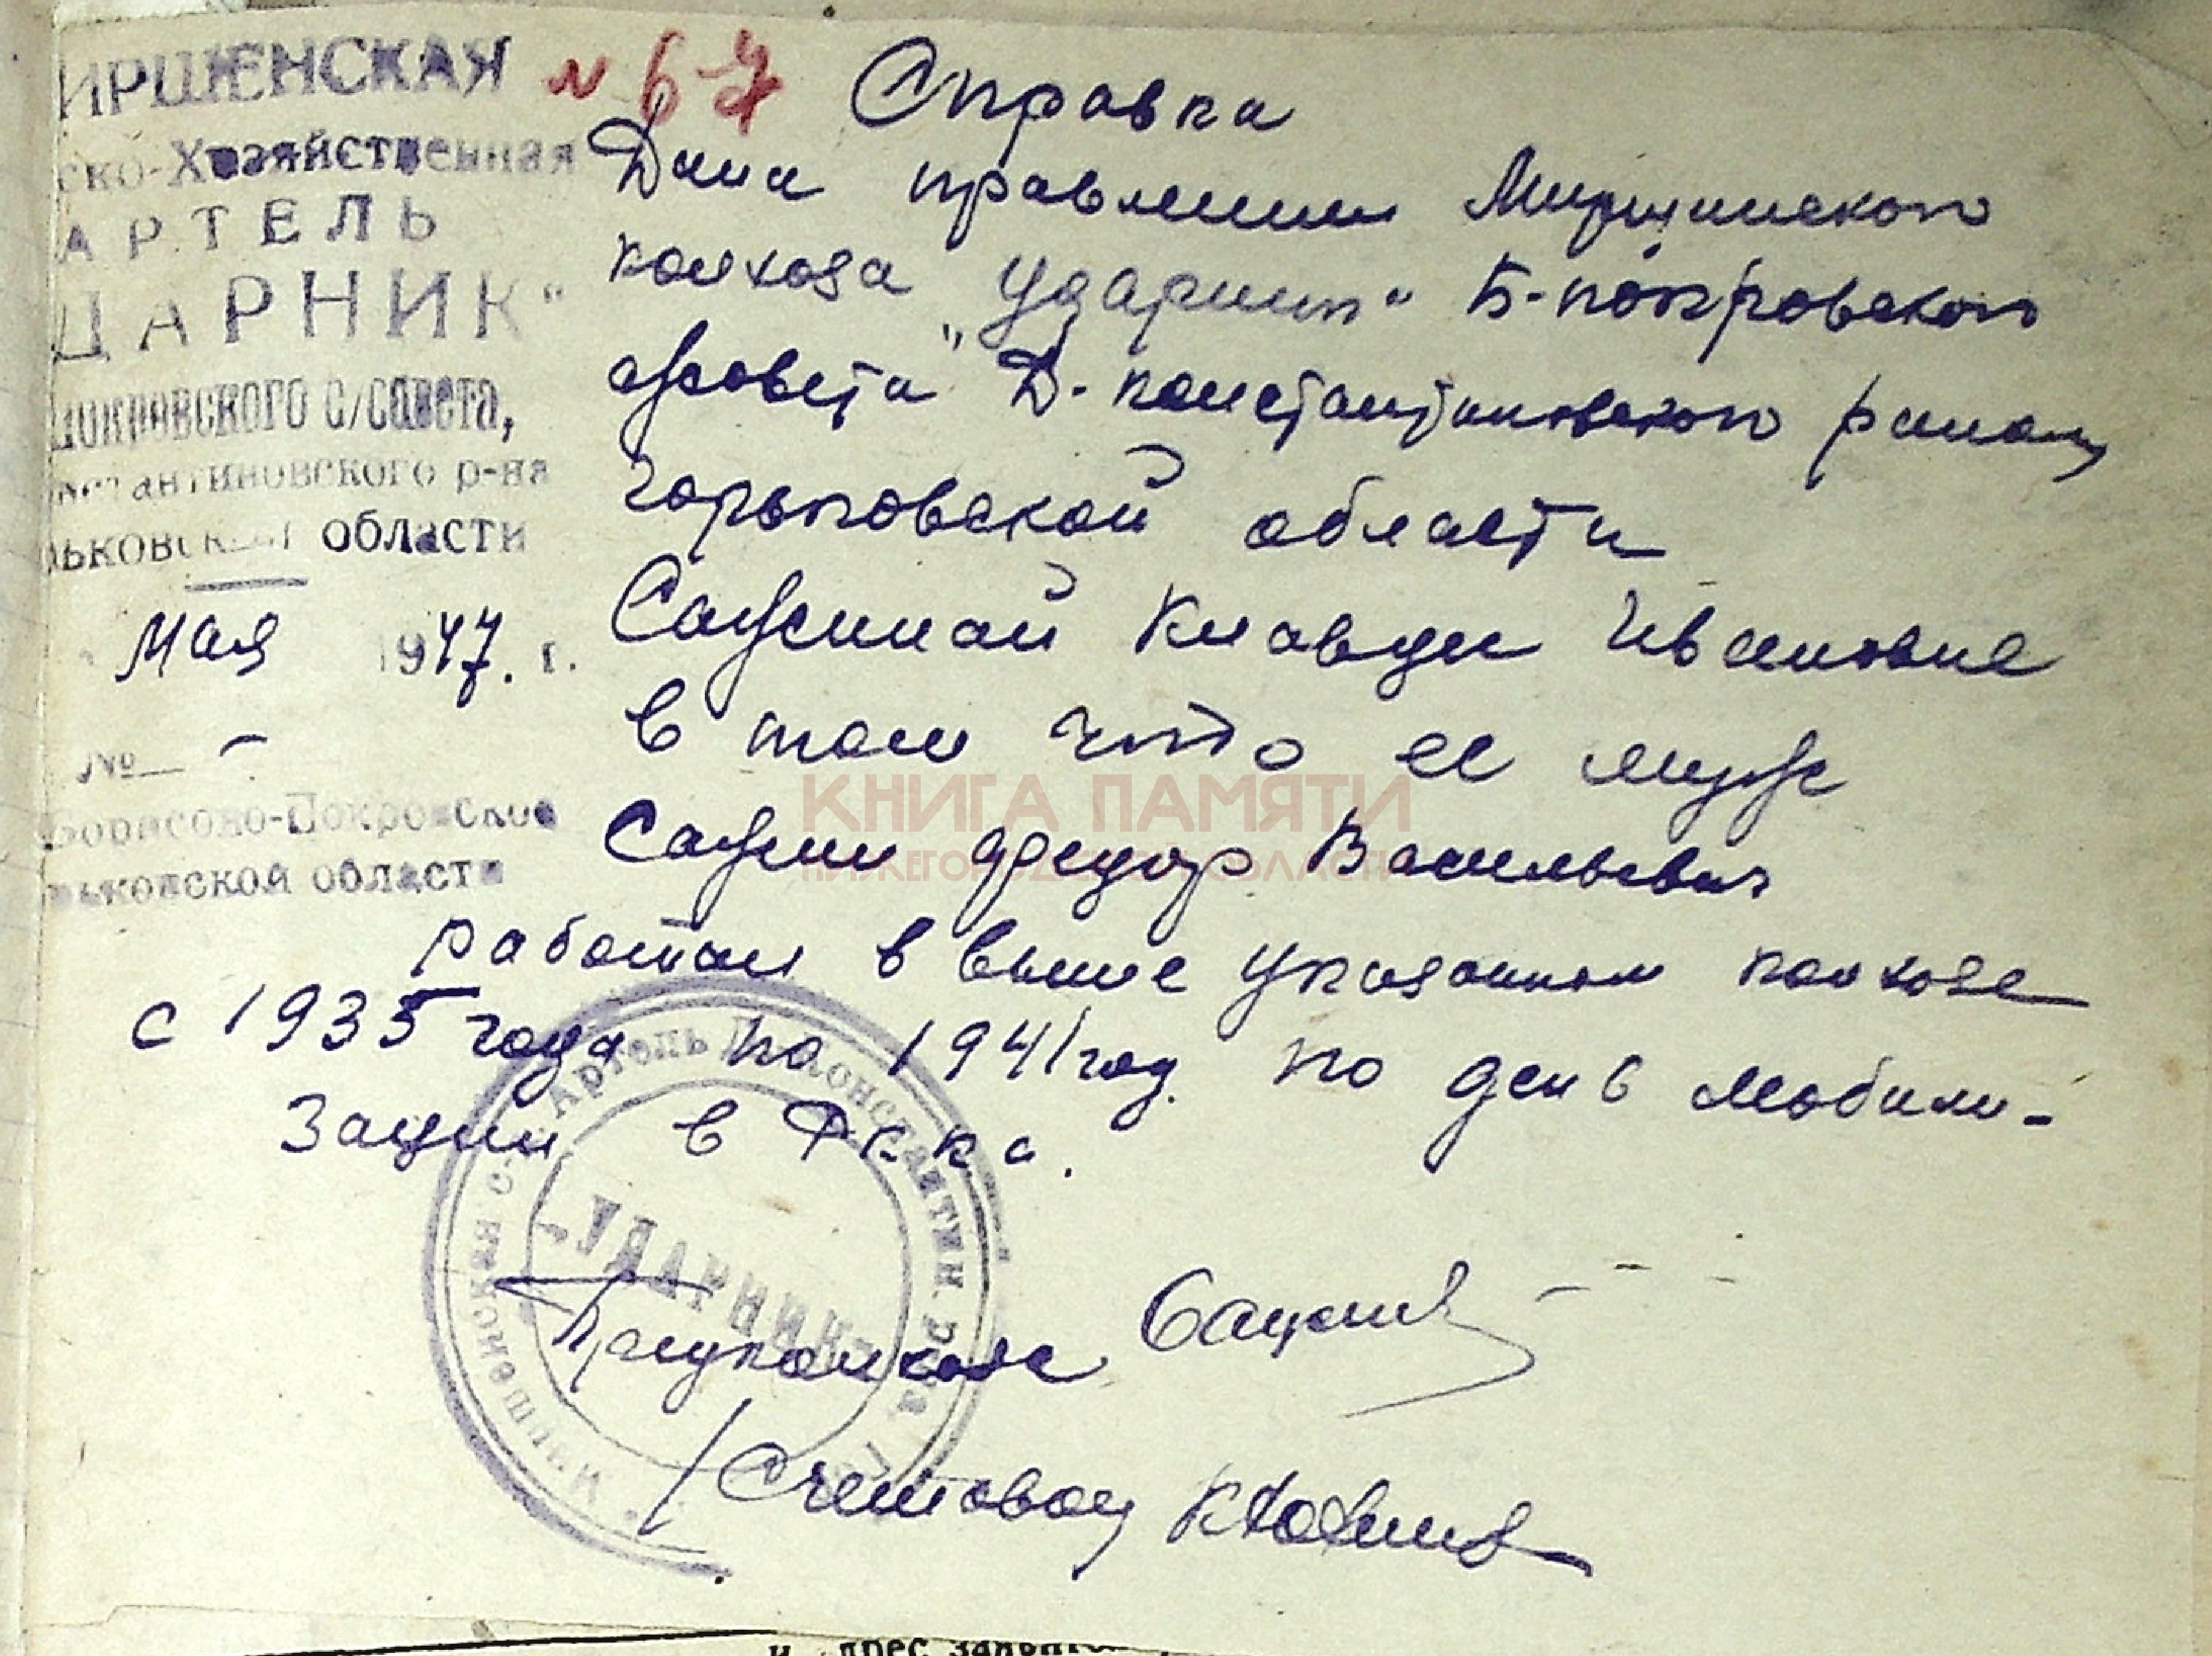 ИРШЕНСКАЯ
ско-Хозяйственная
АРТЕЛЬ
ДАРНИК"
Покровского с/совета,
нстантиновского р-на
рьковской области
мая 1947. г.
№ –
Борисово-Покровское
рьковской области
№ 67
Справка
Дана правлением
колхоза „Ударник" Б-покровского
с/совета Д-константиновского района
Горьковской области
Клавдии Ивановне
в том что ее муж
Федор Васильевич
работал в выше указанном колхозе
с 1935 года по 1941 год. по день мобили-
зации в РККА.
Предколхоза
Счетовод
Артель Д-Константин.
„УДАРНИК"
КНИГА ПАМЯТИ
НИЖЕГОРОДСКОЙ ОБЛАСТИ